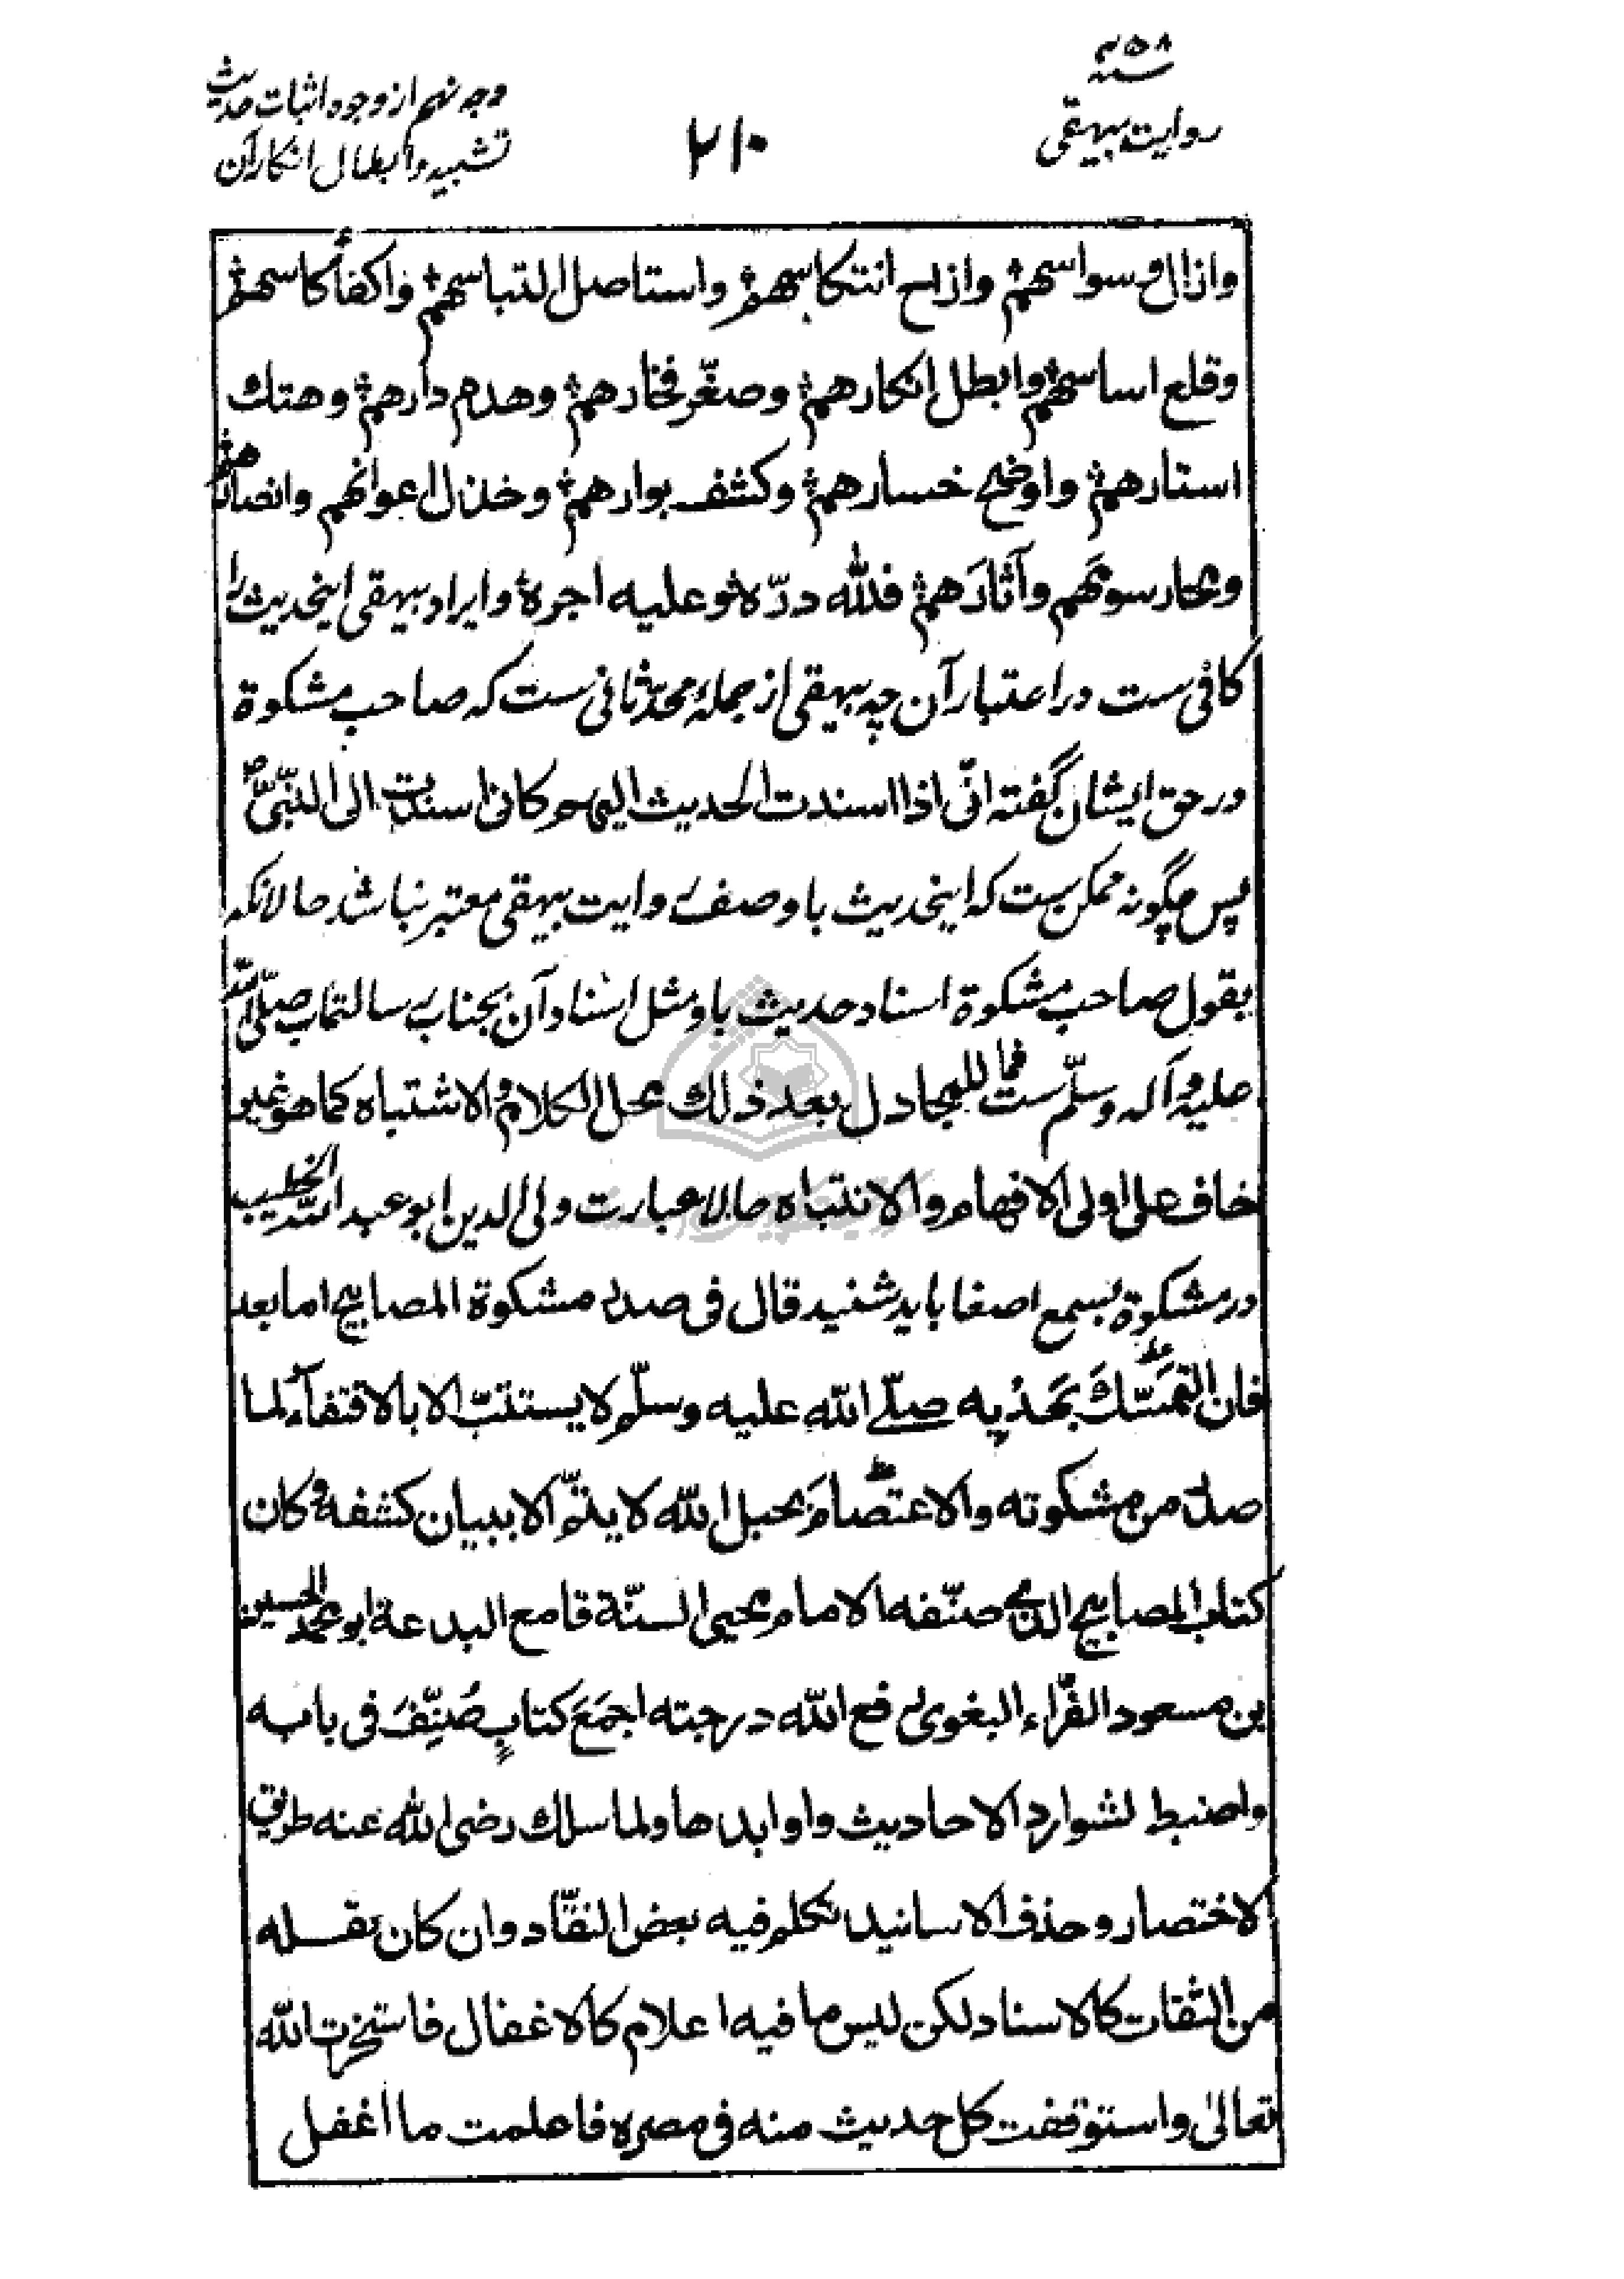 سنه ۴۵۸
روایت بیهقی
۲۱۰
وجه نهم از وجوه اثبات حدیث
تشبیه و ابطال انکار آن
وازال وسواسهم وازاح انتكاسهم واستاصل التباسهم واكفأ كاسهم
وقلع اساسهم وابطل انكارهم وصغّر فخارهم وهدم دارهم وهتك
استارهم واوضح خسارهم وكشف بوارهم وخذل اعوانهم وانصارهم
ومحا رسومهم وآثارهم فلله درّه وعليه اجره وایراد بیهقی اینحدیث را
کافی ست در اعتبار آن چه بیهقی از جملهٔ محدّثانی ست که صاحب مشکوة
در حق ایشان گفته انّى اذا اسندت الحديث اليهم كانى اسندت الى النّبىّ ص
پس چگونه ممکن ست که اینحدیث با وصف روایت بیهقی معتبر نباشد حالانکه
بقول صاحب مشکوة اسناد حدیث باو مثل اسناد آن بجناب رسالتمآب صلّی الله
علیه وآله وسلّم ست فما للمجادل بعد ذلك محل الكلام والاشتباه كما هو غير
خاف على اولى الافهام والانتباه حالا عبارت ولی الدین ابو عبد الله الخطیب
در مشکوة بسمع اصغا باید شنید قال فى صدر مشكوة المصابيح اما بعد
فان التمسّك بهديه صلّى الله عليه وسلّم لا يستتبّ الا بالاقتفاء لما
صدر من مشكوته والاعتصام بحبل الله لا يتمّ الا ببيان كشفه وكان
كتاب المصابيح الذى صنّفه الامام محيى السنّة قامع البدعة ابو محمد الحسين
بن مسعود الفرّاء البغوى رفع الله درجته اجمع كتاب صُنِّفَ فى بابه
واضبط لشوارد الاحاديث واوابدها ولما سلك رضى الله عنه طريق
الاختصار وحذف الاسانيد تكلم فيه بعض النقّاد وان كان نقله
من الثقات كالاسناد لكن ليس ما فيه اعلام كالاغفال فاستخرت الله
تعالى واستوقفت كل حديث منه فى مصره فاعلمت ما اغفل